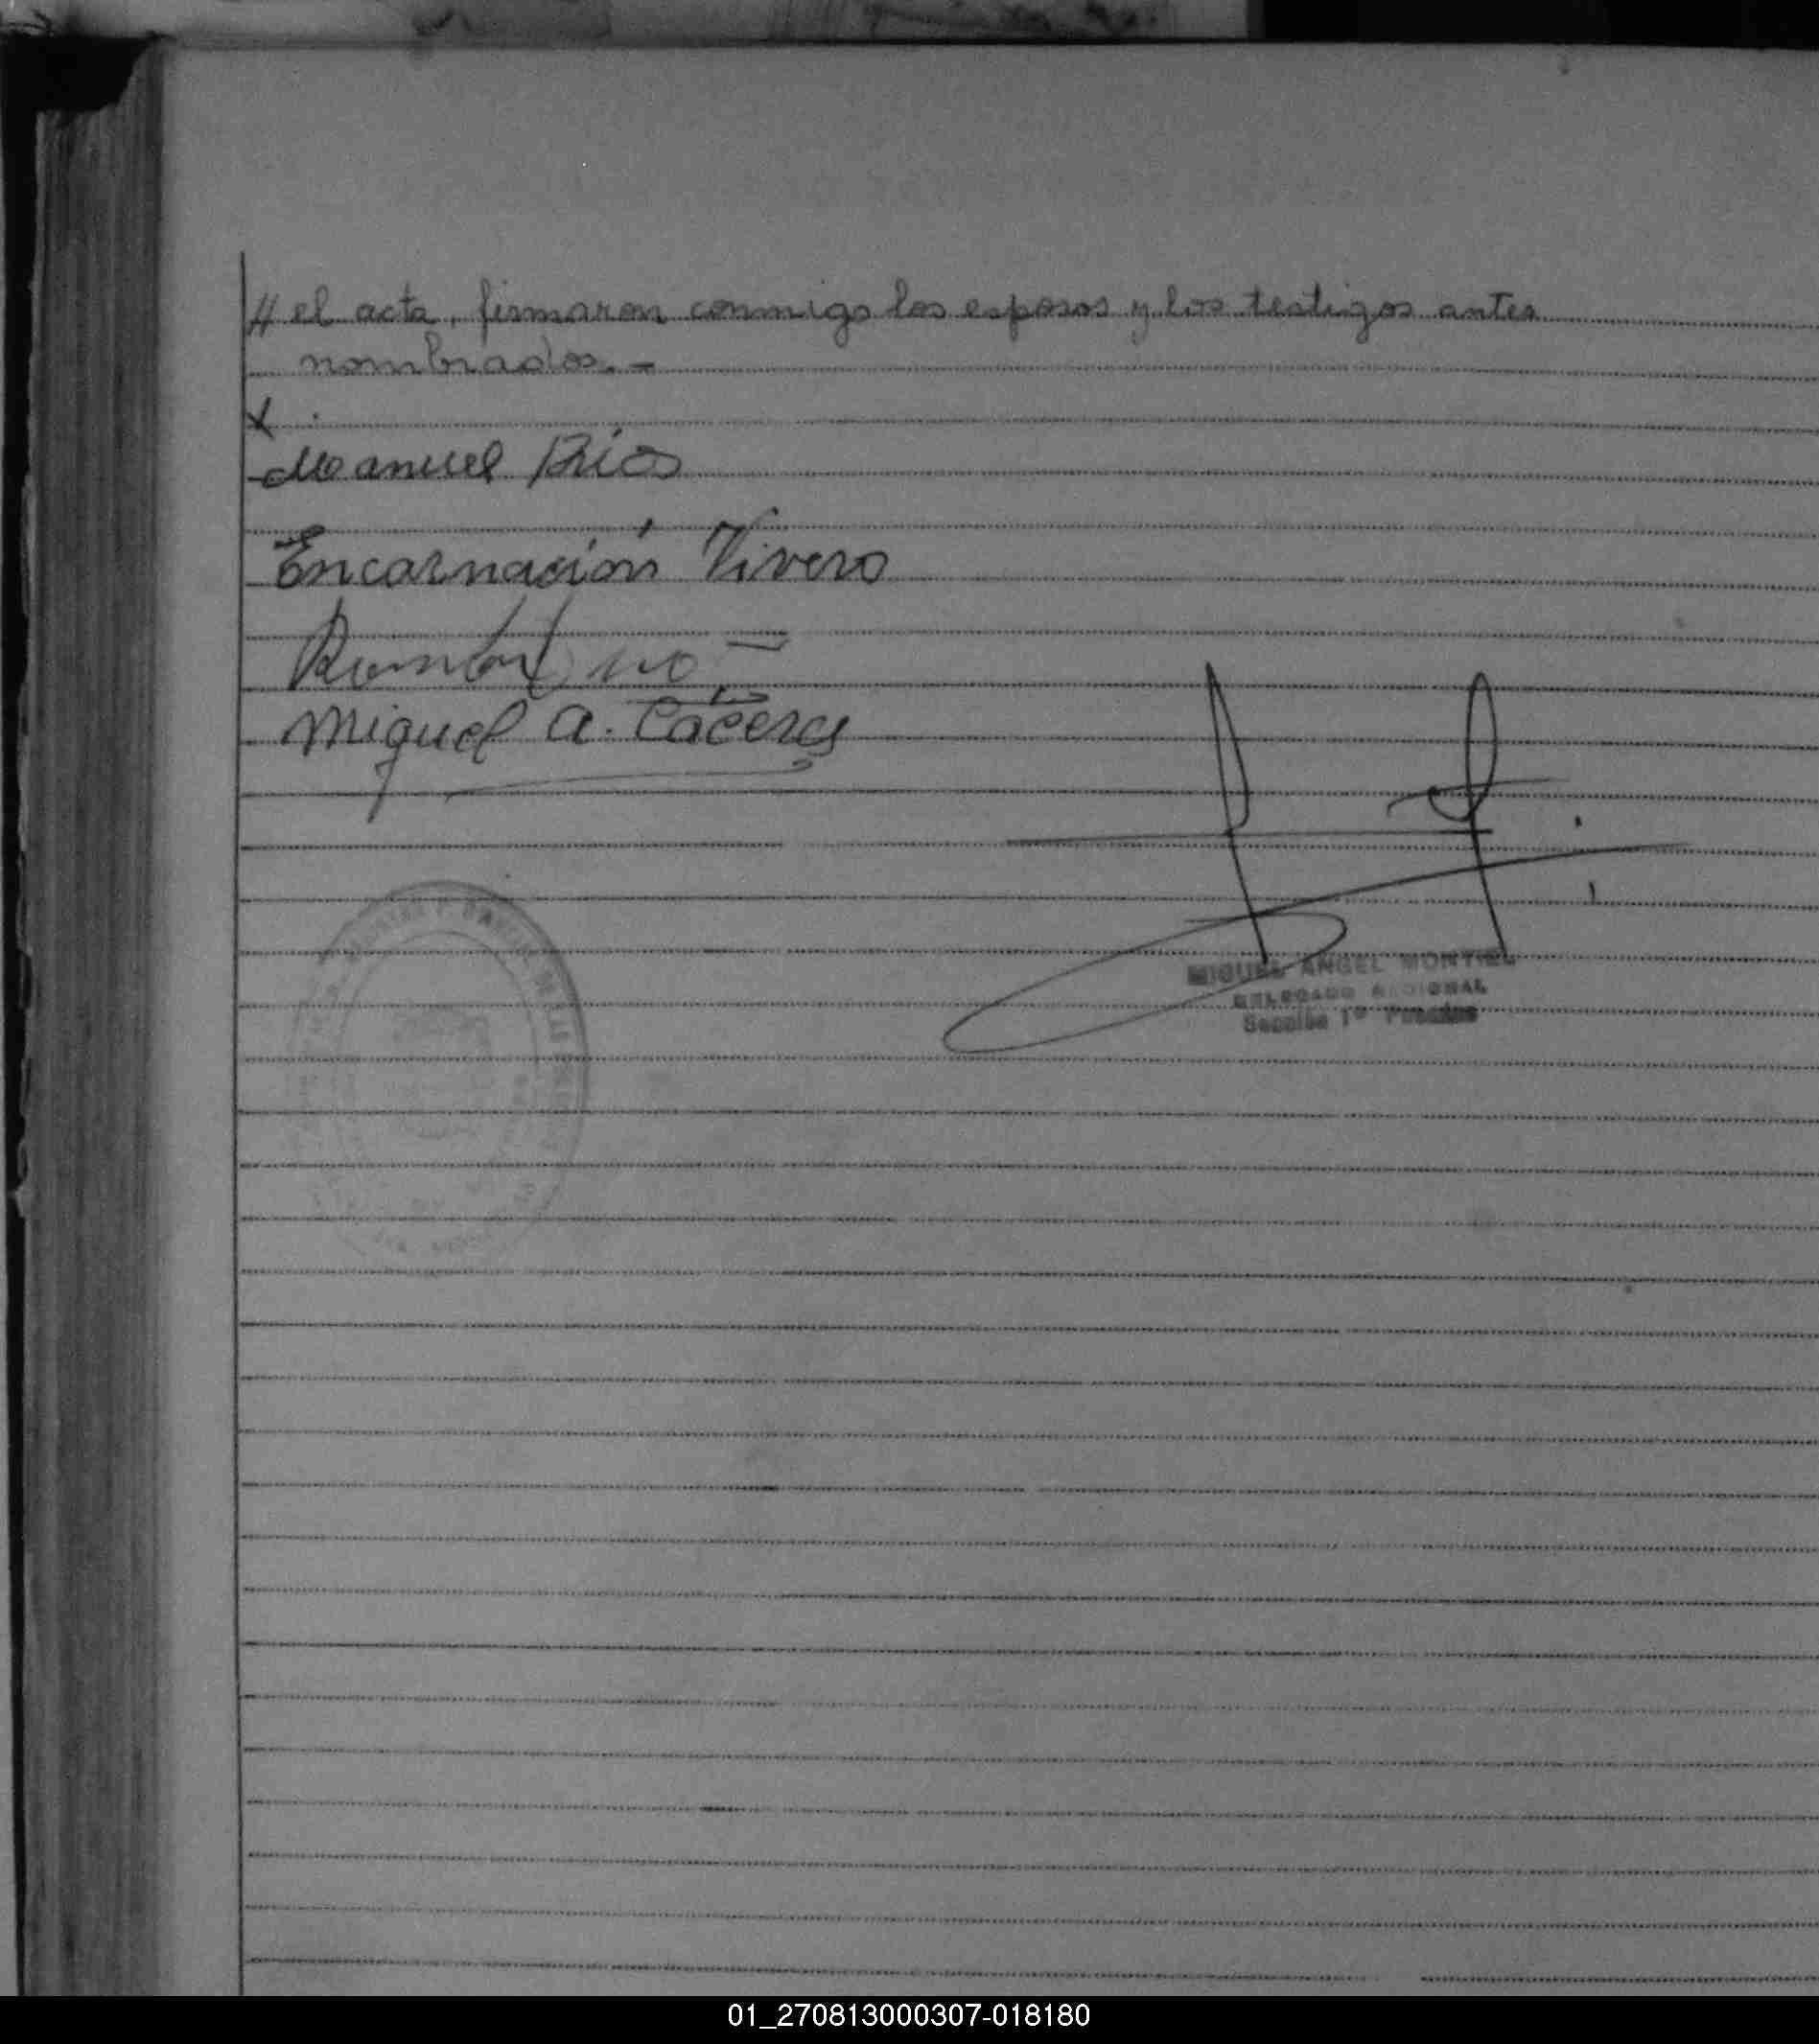 // el acta, firmaron conmigo los esposos y los testigos antes
nombrados.-
x
Manuel Ríos
Encarnación Vivero
Miguel A. Cáceres
MIGUEL ANGEL MONTIEL
DELEGADO REGIONAL
Sección 1ª
01_270813000307-018180